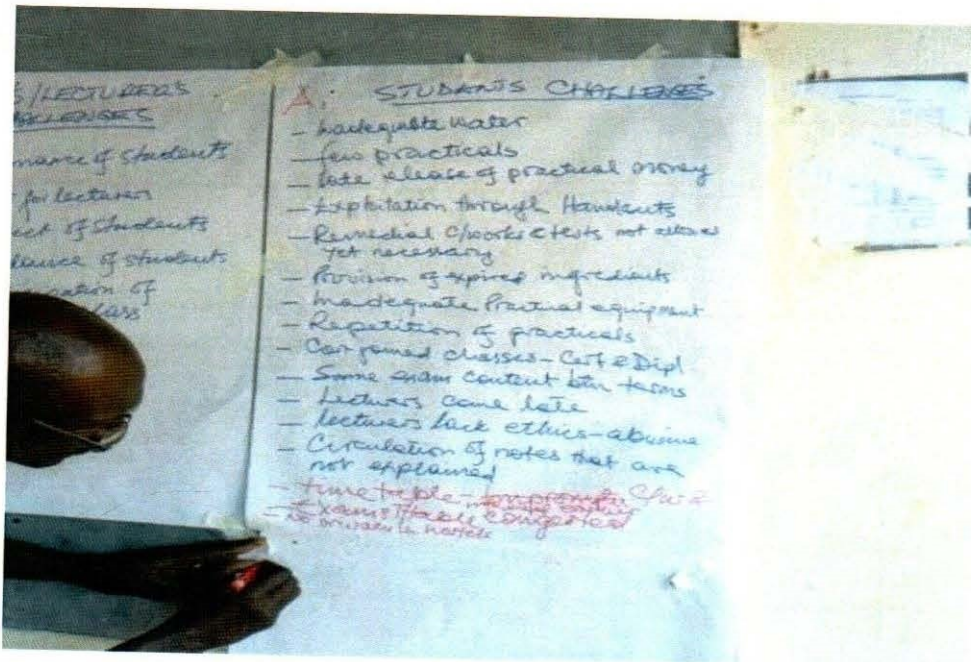 S/LECTURERS
CHALLENGES
mance of students
for lecturers
ect of students
dance of students
of
lass
A: STUDENTS CHALLENGES
- Inadequate water
- few practicals
- late release of practical money
- Exploitation through Handouts
- Remedial C/works & tests not
yet necessary
- Provision of expired ingredients
- Inadequate Practical equipment
- Repetition of practicals
- classes - Cert & Dipl
- Same exam content btn terms
- Lecturers come late
- lecturers lack ethics - abusive
- Circulation of notes that are
not explained
- time table -
- Exams congested